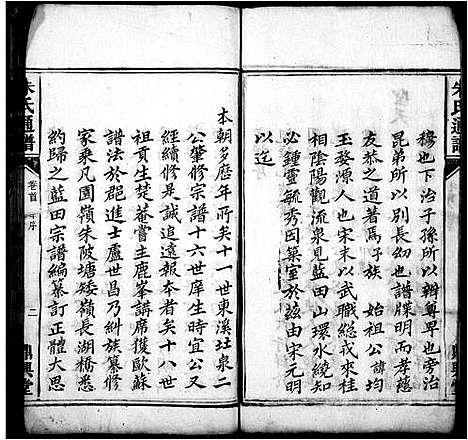 穆也下治子孫所以辨尊卑也旁治
昆弟所以別長幼也譜牒明而孝慈
友恭之道著焉予族 始祖公諱均
玉婺源人也宋末以武職總戎來桂
相陰陽觀流泉見藍田山環水繞知
必鍾靈毓秀因築室於兹由宋元明
以迄
本朝多歷年所矣十一世東溪圵泉二
公肇修宗譜十六世庠生時宜公又
經續修是誠追遠報本者矣十八世
祖貢生楚菴嘗主鹿峯講席獲歐蘇
譜法於郡進士盧世昌乃糾族纂修
家乘凡園嶺朱陂塘矮嶺長湖橋悉
約歸之藍田宗譜編纂訂正體大思
朱氏通譜
卷首 序
二
鼎興堂
朱氏通譜